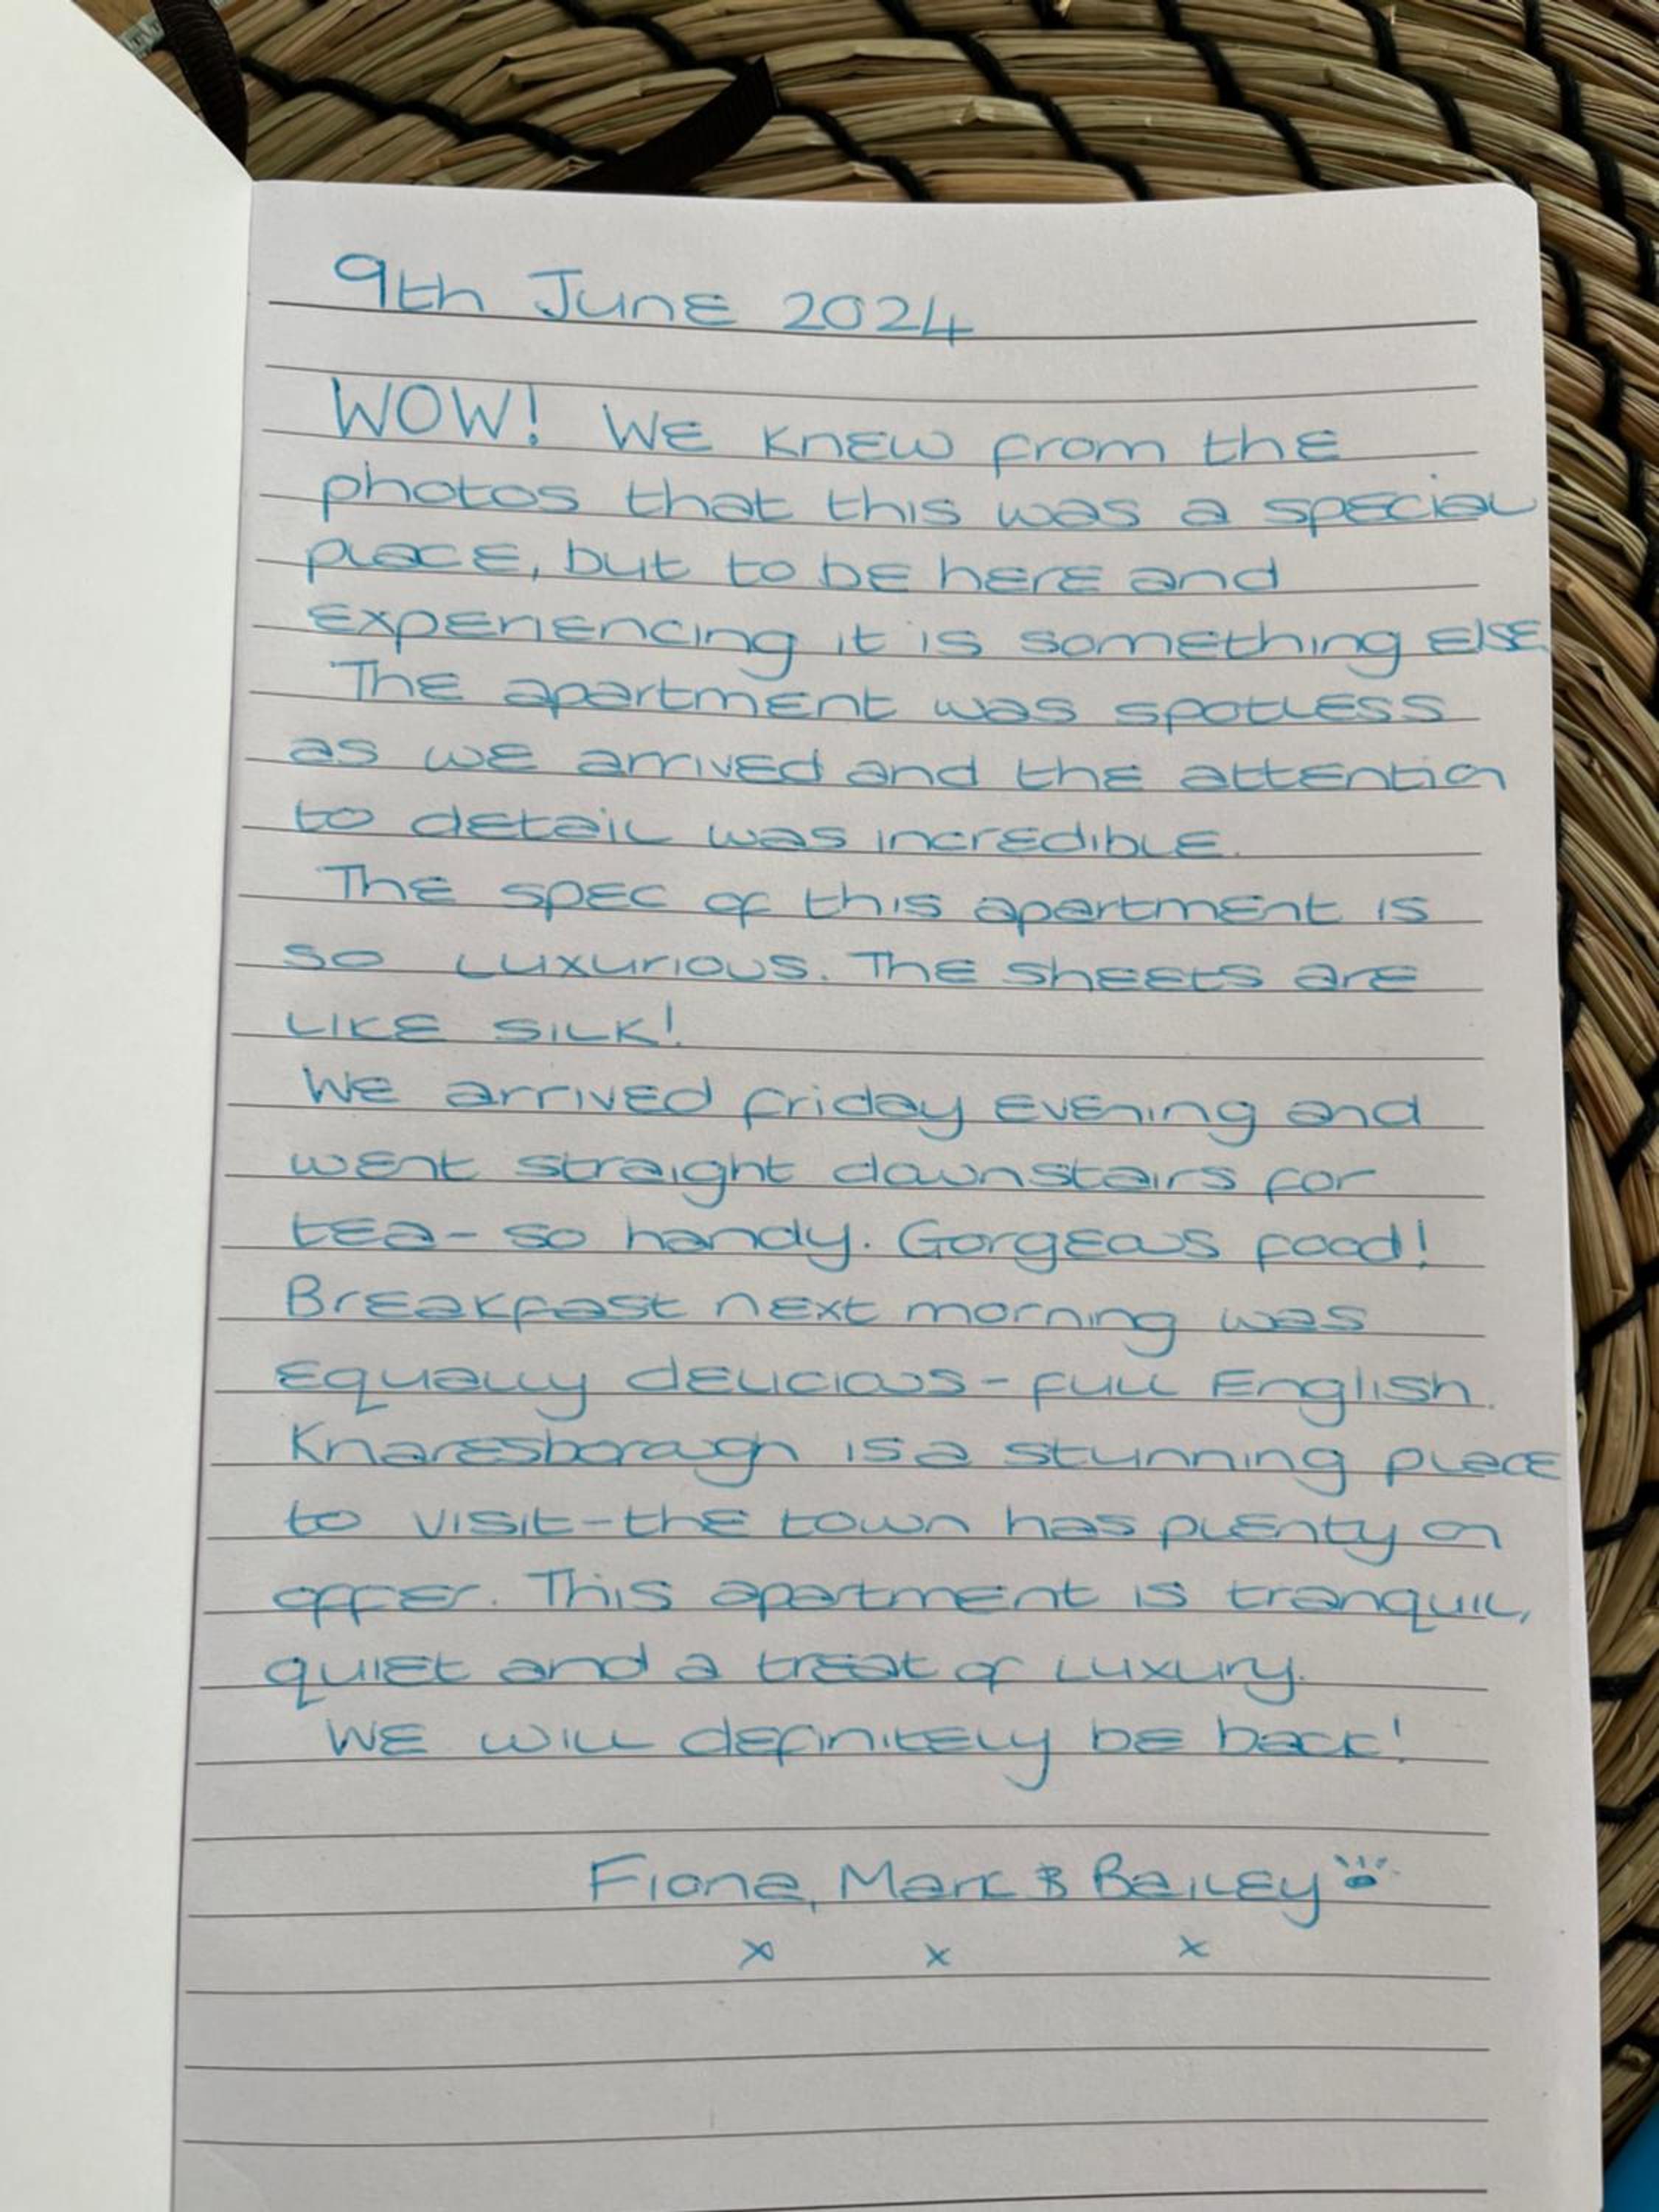 9th June 2024
WOW! We knew from the
photos that this was a special
place, but to be here and
experiencing it is something else
The apartment was spotless
as we arrived and the attention
to detail was incredible.
The spec of this apartment is
so luxurious. The sheets are
like silk!
We arrived friday evening and
went straight downstairs for
tea - so handy. Gorgeous food!
Breakfast next morning was
equally delicious - full English.
Knaresborough is a stunning place
to visit - the town has plenty on
offer. This apartment is tranquil,
quiet and a treat of luxury.
We will definitely be back!
Fiona, Mark & Bailey
x x x